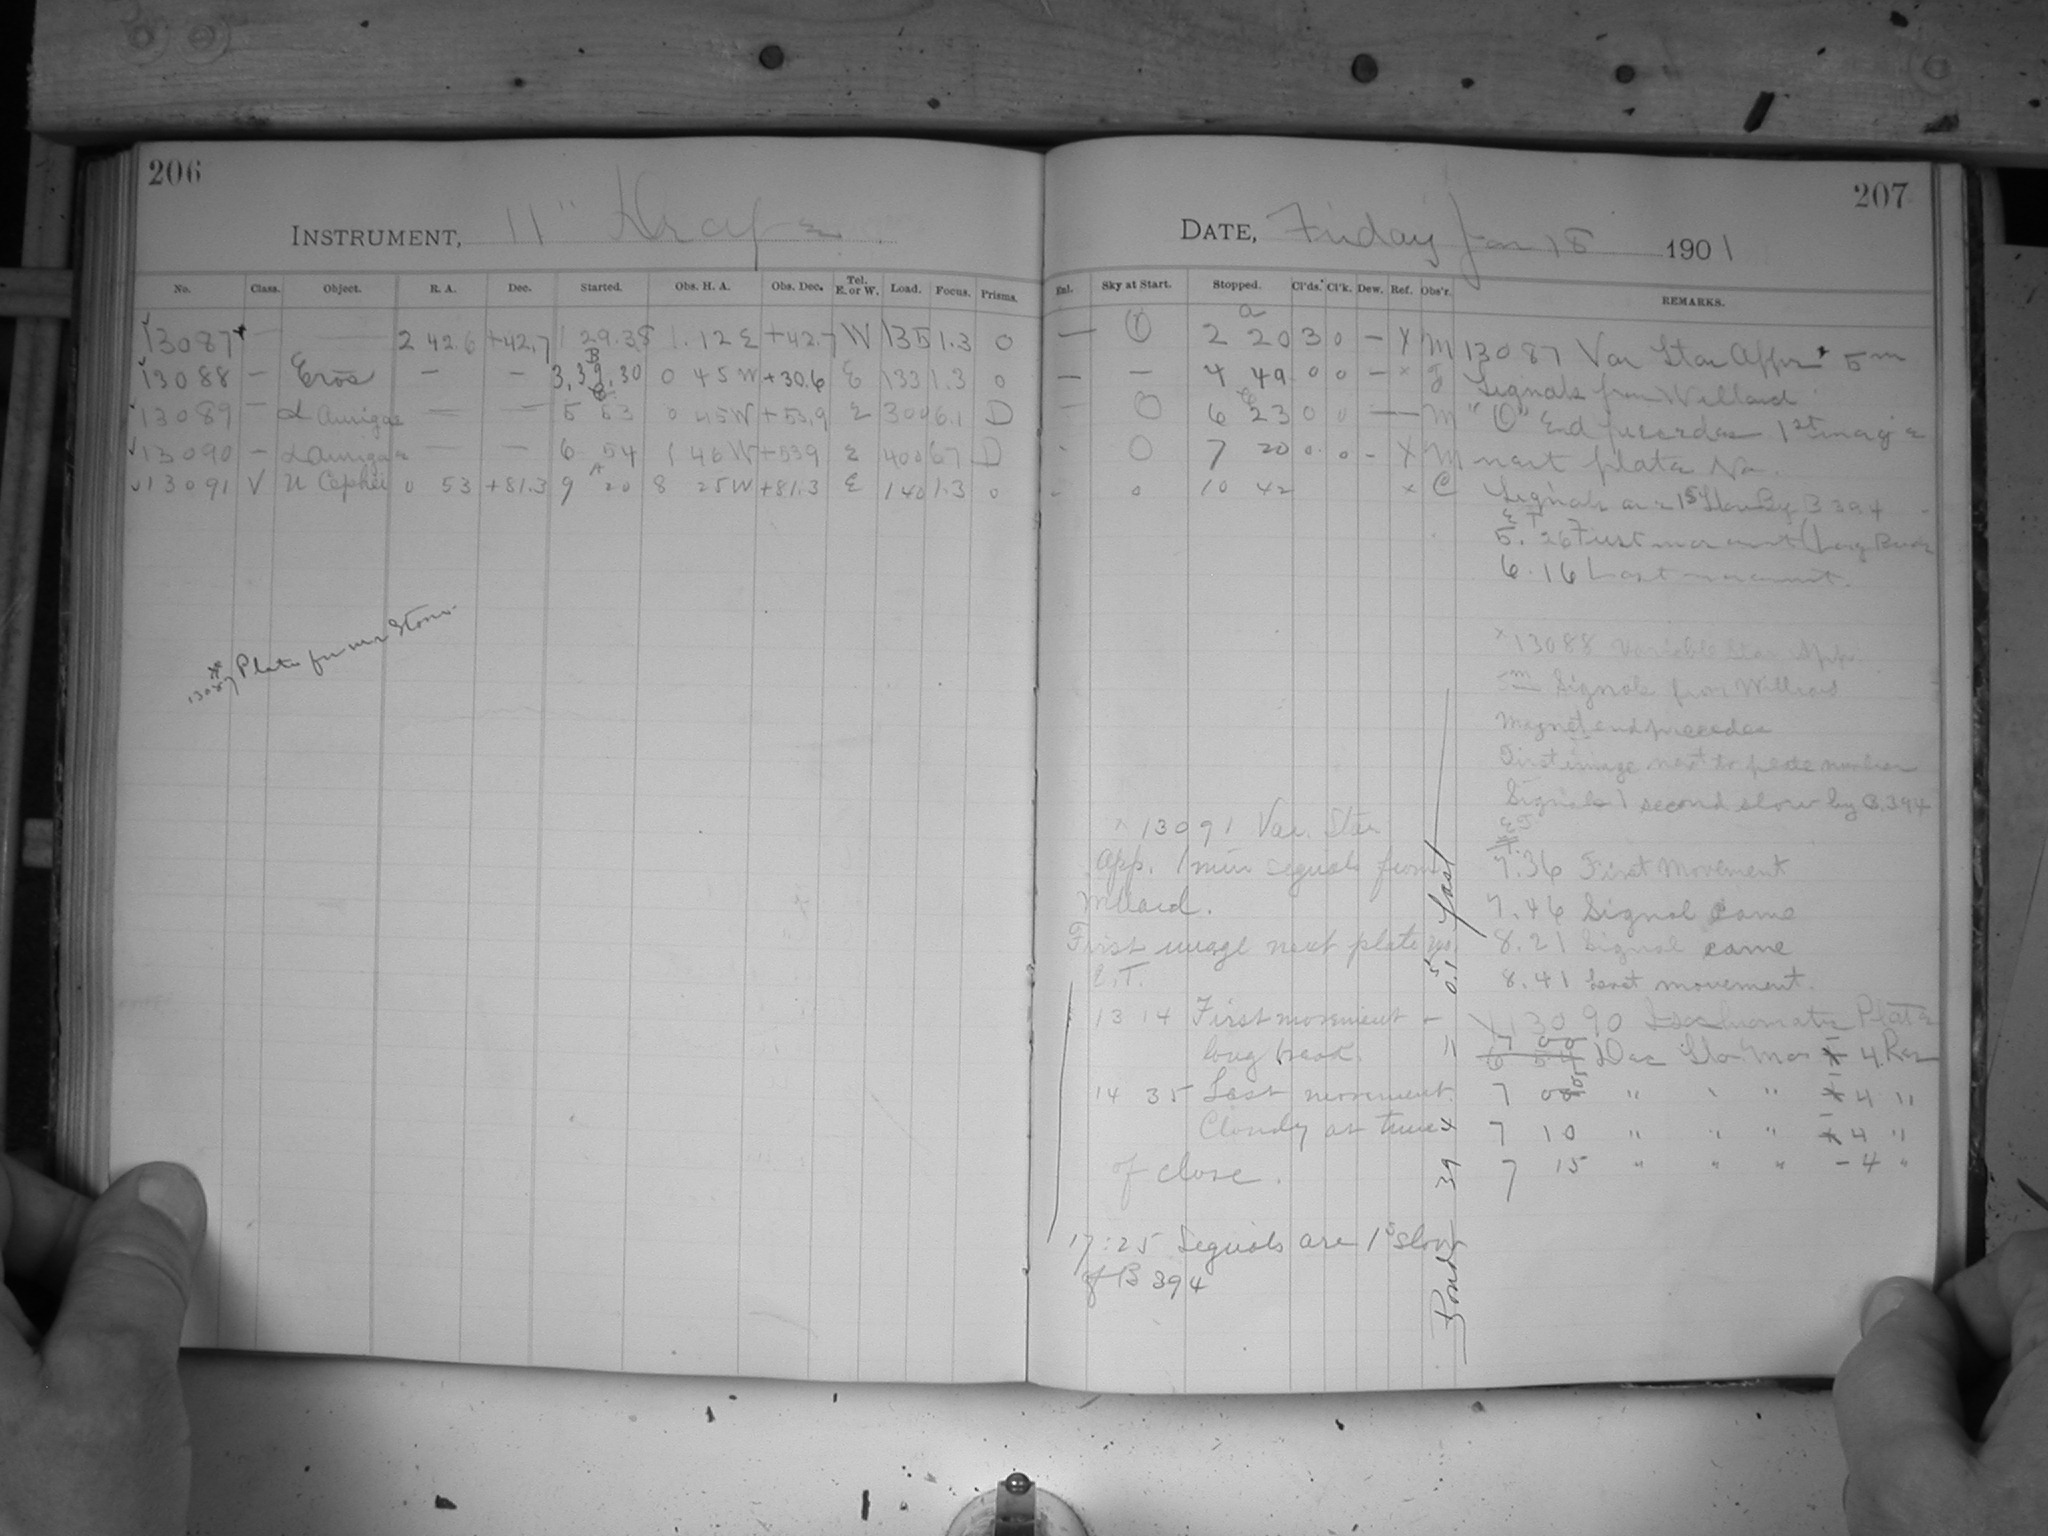 206
INSTRUMENT, 11" Draper
No. Class. Object. R. A. Dec. Started. Obs. H. A. Obs. Dec. Tel. E. or W. Load. Focus. Prisms.
13087 — — 2 42.6 +42.7 1 29.38 1.12 E +42.7 W 135 1.3 0
13088 — Eros — — 3,39,30 0 45 W +30.6 E 133 1.3 0
13089 — α Aurigae — — 5 53 0 45 W +53.9 E 300 6.1 D
13090 — α Aurigae — — 6 54 1 46 W +539 E 400 67 D
13091 V U Cephei 0 53 +81.3 9 20 8 25 W +81.3 E 140 1.3 0
13087 Plate
207
DATE, Friday Jan 18 1901
Enl. Sky at Start. Stopped. Cl'ds. Cl'k. Dew. Ref. Obs'r. REMARKS.
— 2 20 3 0 — X M
— — 4 49 0 0 — x J
— 0 6 23 0 0 — — M
- 0 7 20 0 0 - X M
- 0 10 42 x C
13087 Var Star Appr 5m
Signals from Willard
End precedes 1st image
next plate No.
Signals are 1s slow By B 394
5.26 First movement (Long Break
6.16 Last movement.
x 13088 Variable Star App.
Signals from Willard
Magnet end precedes
First image next to plate number
Signals 1 second slow by B.394
E T
7.36 First Movement
7.46 Signal came
8.21 Signal came
8.41 Last movement.
13090 Isochromatic Plate
7 00 Dec Slo Mo - 4 Rev
7 05 " " " - 4 "
7 10 " " " - 4 "
7 15 " " " - 4 "
x 13091 Var. Star
App. 1 min signals from
Willard.
First image next plate no.
E.T.
13 14 First movement -
long break.
14 35 Last movement.
Cloudy at time
of close.
17:25 Signals are 1s slow
of B 394
Bond 394 " - 0.1s fast